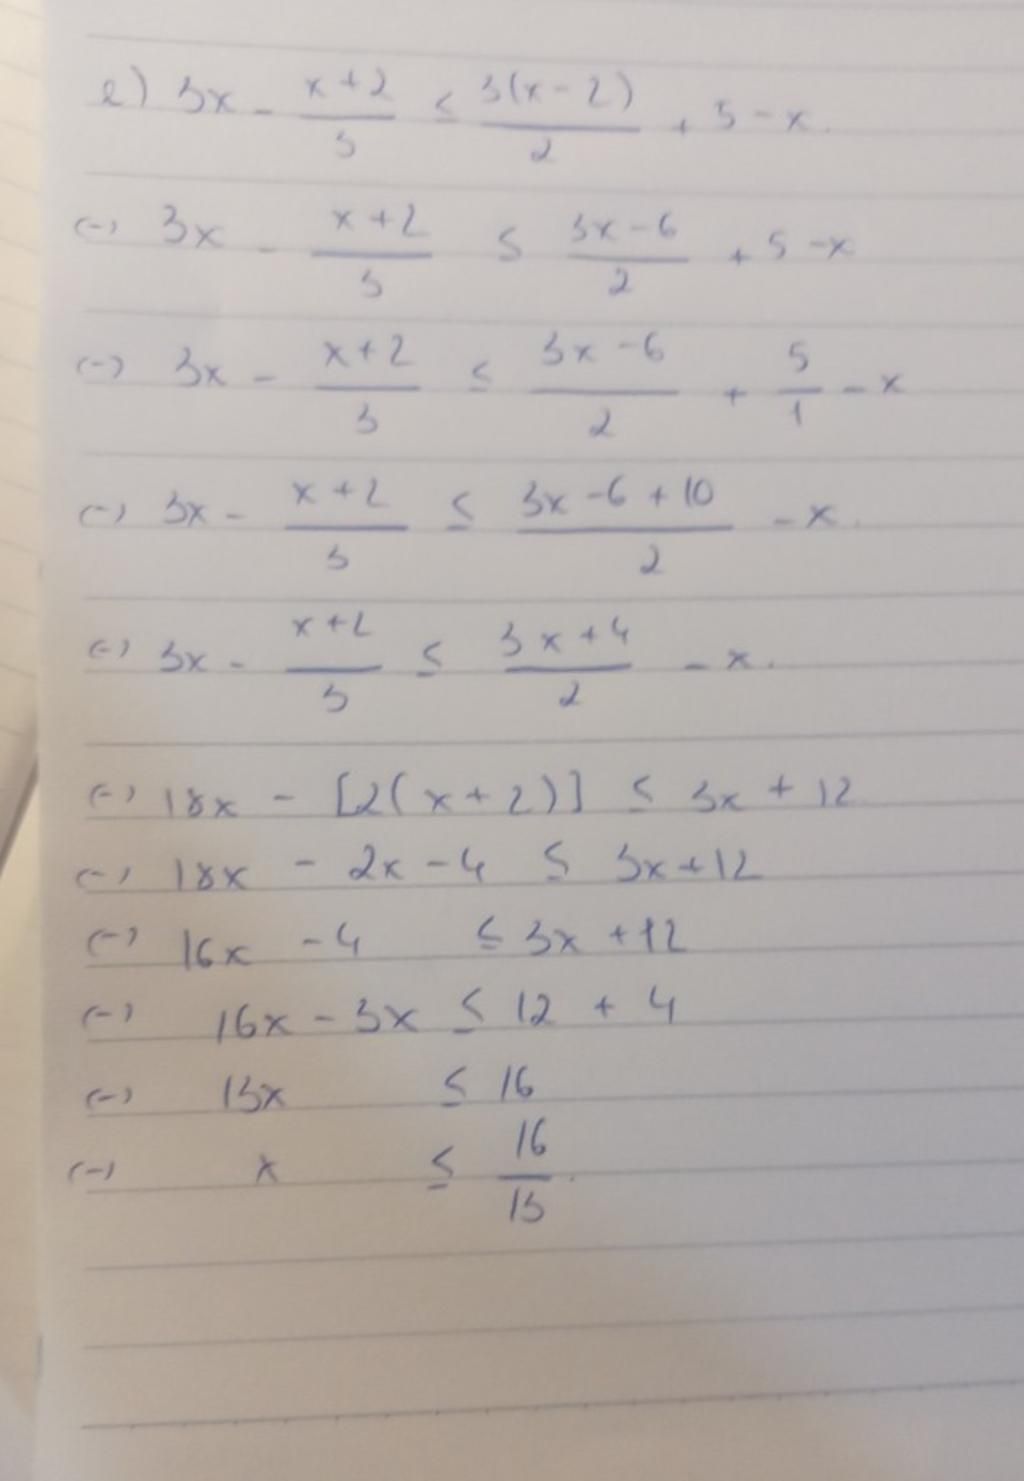 e) 3x - (x+2)/3 ≤ 3(x-2)/2 + 5 - x.
(=) 3x - (x+2)/3 ≤ (3x-6)/2 + 5 - x
(=) 3x - (x+2)/3 ≤ (3x-6)/2 + 5/1 - x
(=) 3x - (x+2)/3 ≤ (3x-6+10)/2 - x.
(=) 3x - (x+2)/3 ≤ (3x+4)/2 - x.
(=) 18x - [2(x+2)] ≤ 3x + 12
(=) 18x - 2x - 4 ≤ 3x+12
(=) 16x - 4 ≤ 3x + 12
(=) 16x - 3x ≤ 12 + 4
(=) 13x ≤ 16
(=) x ≤ 16/13.